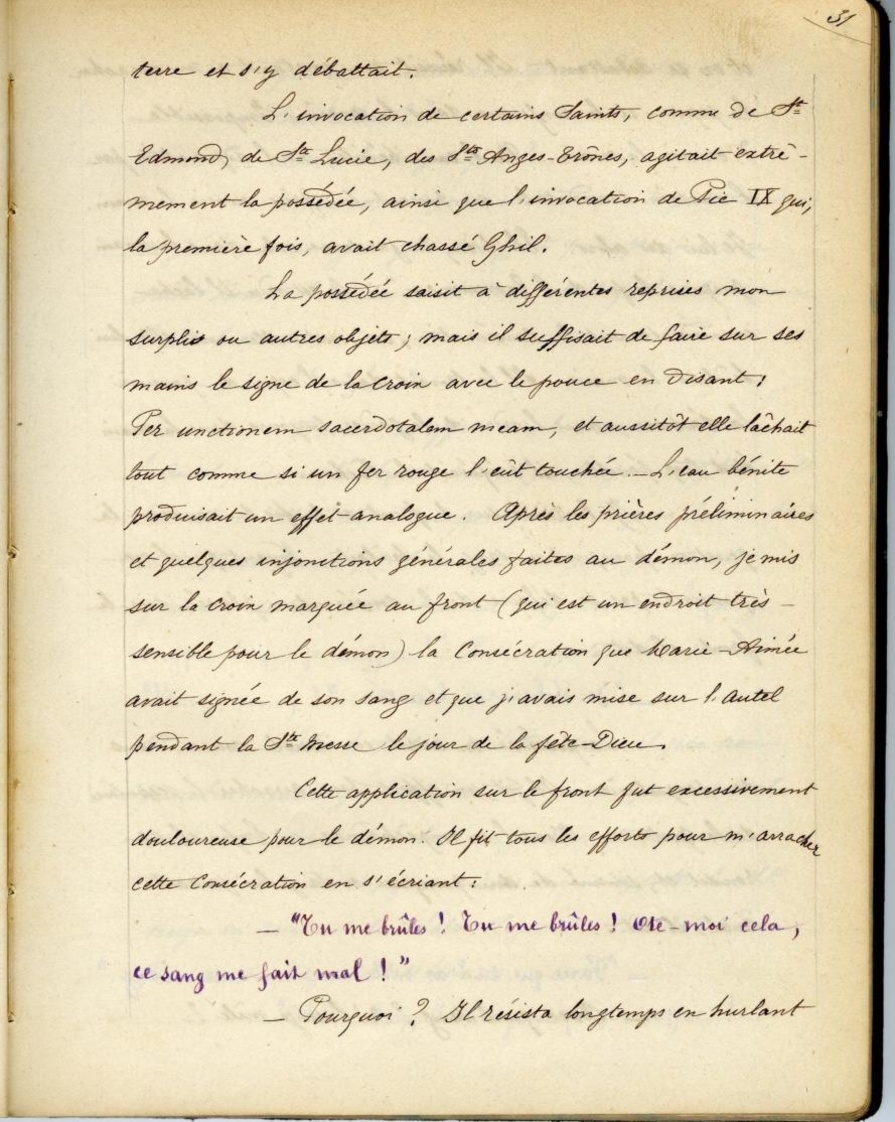 31
terre et s'y débattait.
L'invocation de certains Saints, comme de St
Edmond, de Ste Lucie, des Sts Anges-Trônes, agitait extrê-
mement la possédée, ainsi que l'invocation de Pie IX qui,
la première fois, avait chassé Ghil.
La possédée saisit à différentes reprises mon
surplis ou autres objets ; mais il suffisait de faire sur ses
mains le signe de la croix avec le pouce en disant :
Per unctionem sacerdotalem meam, et aussitôt elle lâchait
tout comme si un fer rouge l'eût touchée. _ L'eau bénite
produisait un effet analogue. Après les prières préliminaires
et quelques injonctions générales faites au démon, je mis
sur la croix marquée au front (qui est un endroit très-
sensible pour le démon) la Consécration que Marie-Aimée
avait signée de son sang et que j'avais mise sur l'Autel
pendant la Ste Messe le jour de la fête-Dieu.
Cette application sur le front fut excessivement
douloureuse pour le démon. Il fit tous les efforts pour m'arracher
cette Consécration en s'écriant :
_ "Tu me brûles ! Tu me brûles ! Ote-moi cela,
ce sang me fait mal !"
_ Pourquoi ? Il résista longtemps en hurlant